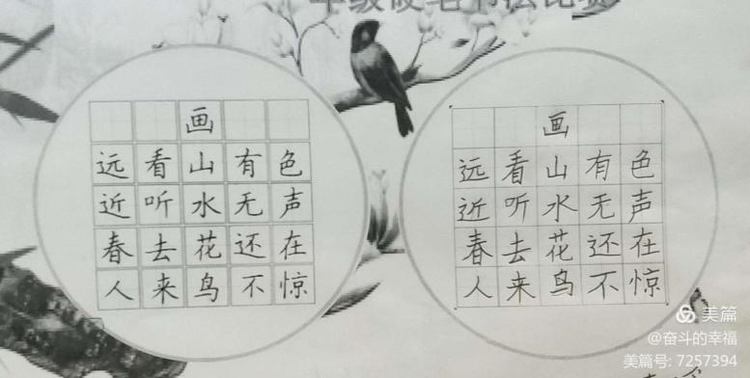 年级硬笔书法比赛
画
远看山有色
近听水无声
春去花还在
人来鸟不惊
画
远看山有色
近听水无声
春去花还在
人来鸟不惊
美篇
@奋斗的幸福
美篇号: 7257394